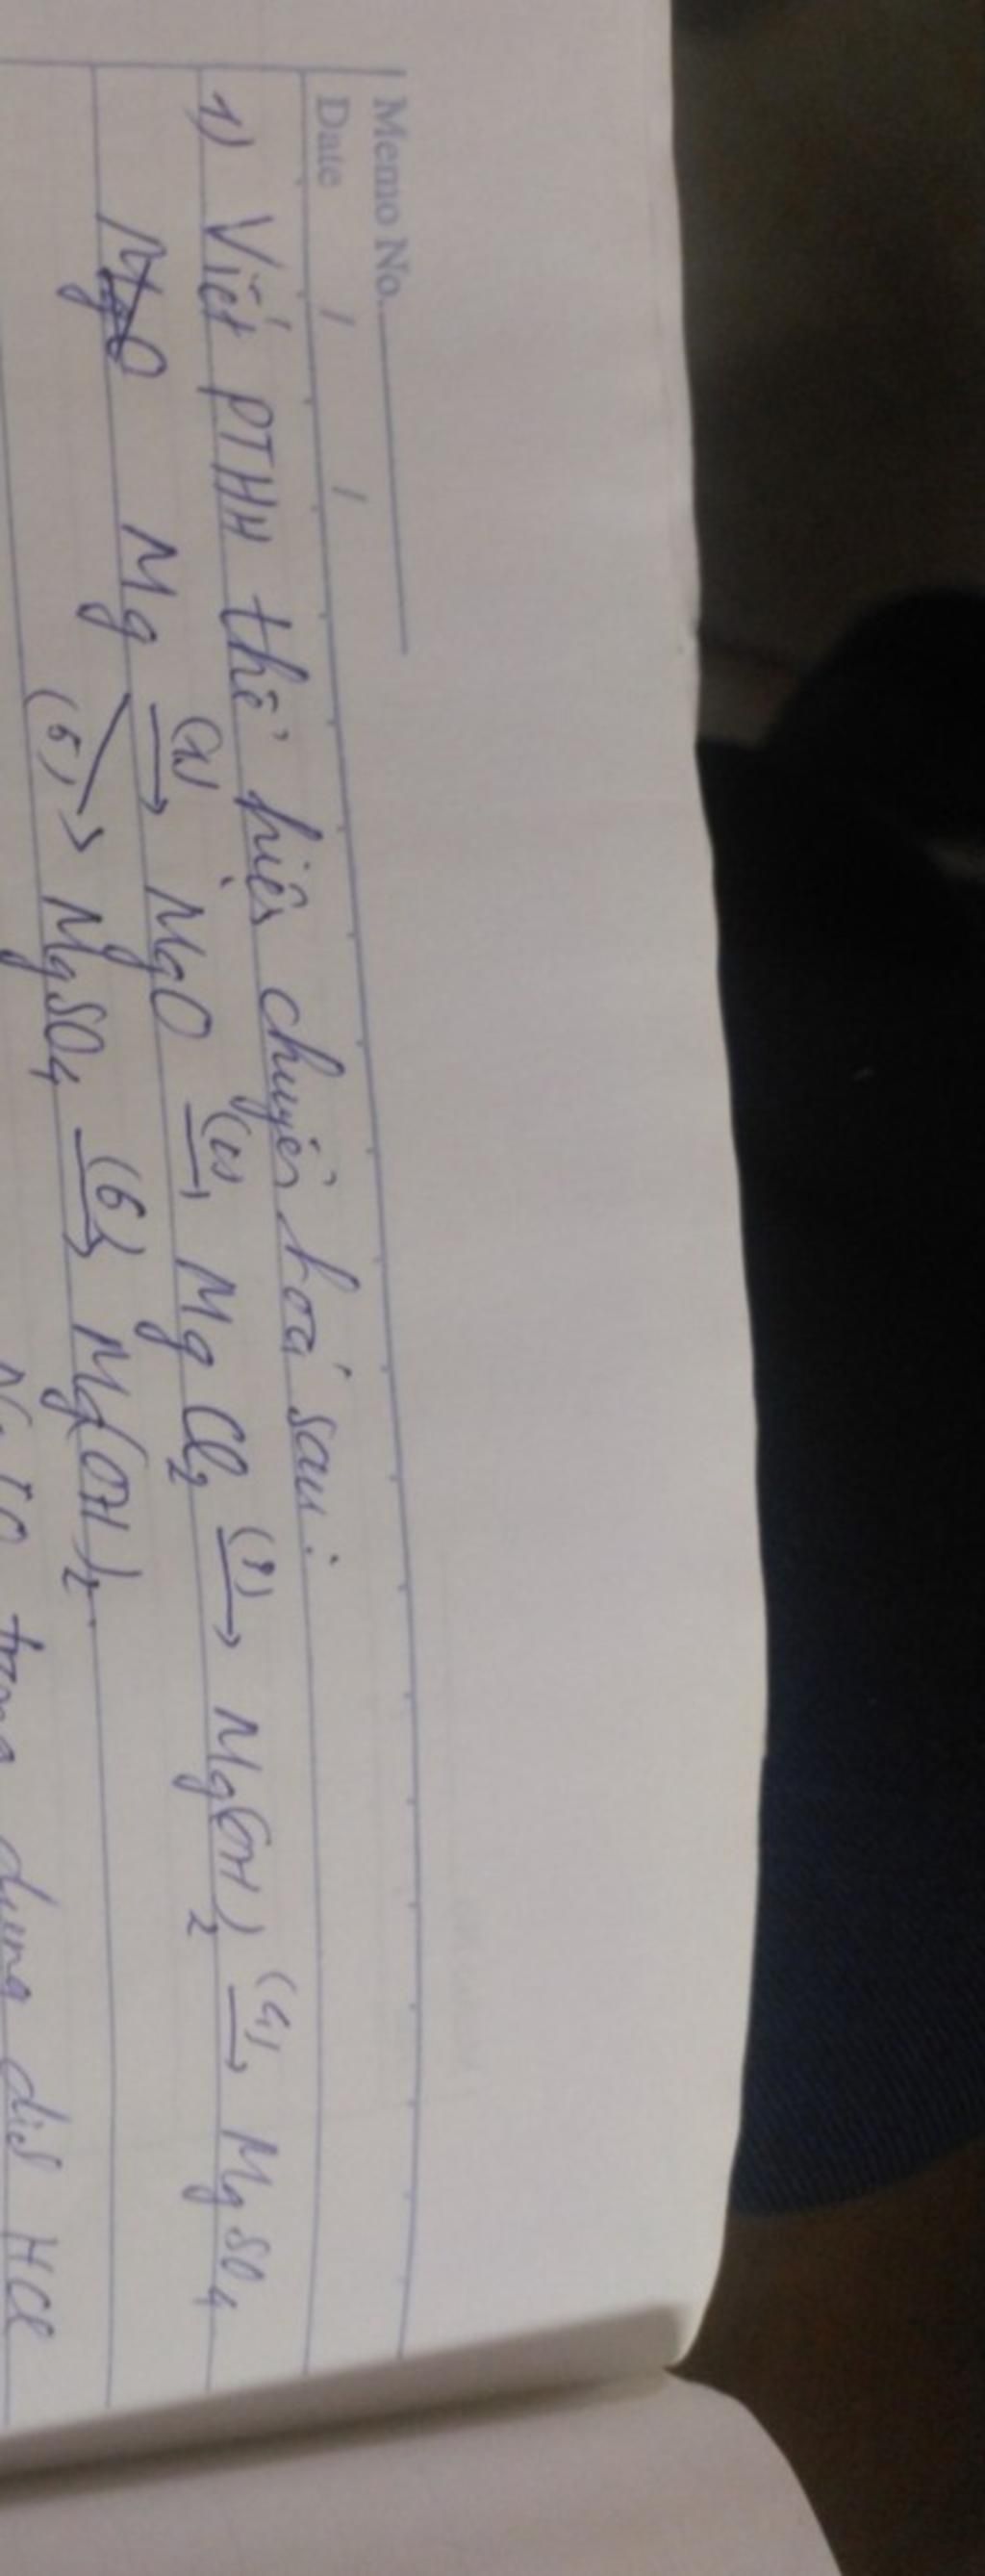 Memo No.
Date / /
1) Viết PTHH thể hiện chuyển hoá sau:
Mg (1)→ MgO (2)→ MgCl2 (3)→ Mg(OH)2 (4)→ MgSO4
(5)→ MgSO4 (6)→ Mg(OH)2.
trong dung dịch HCl